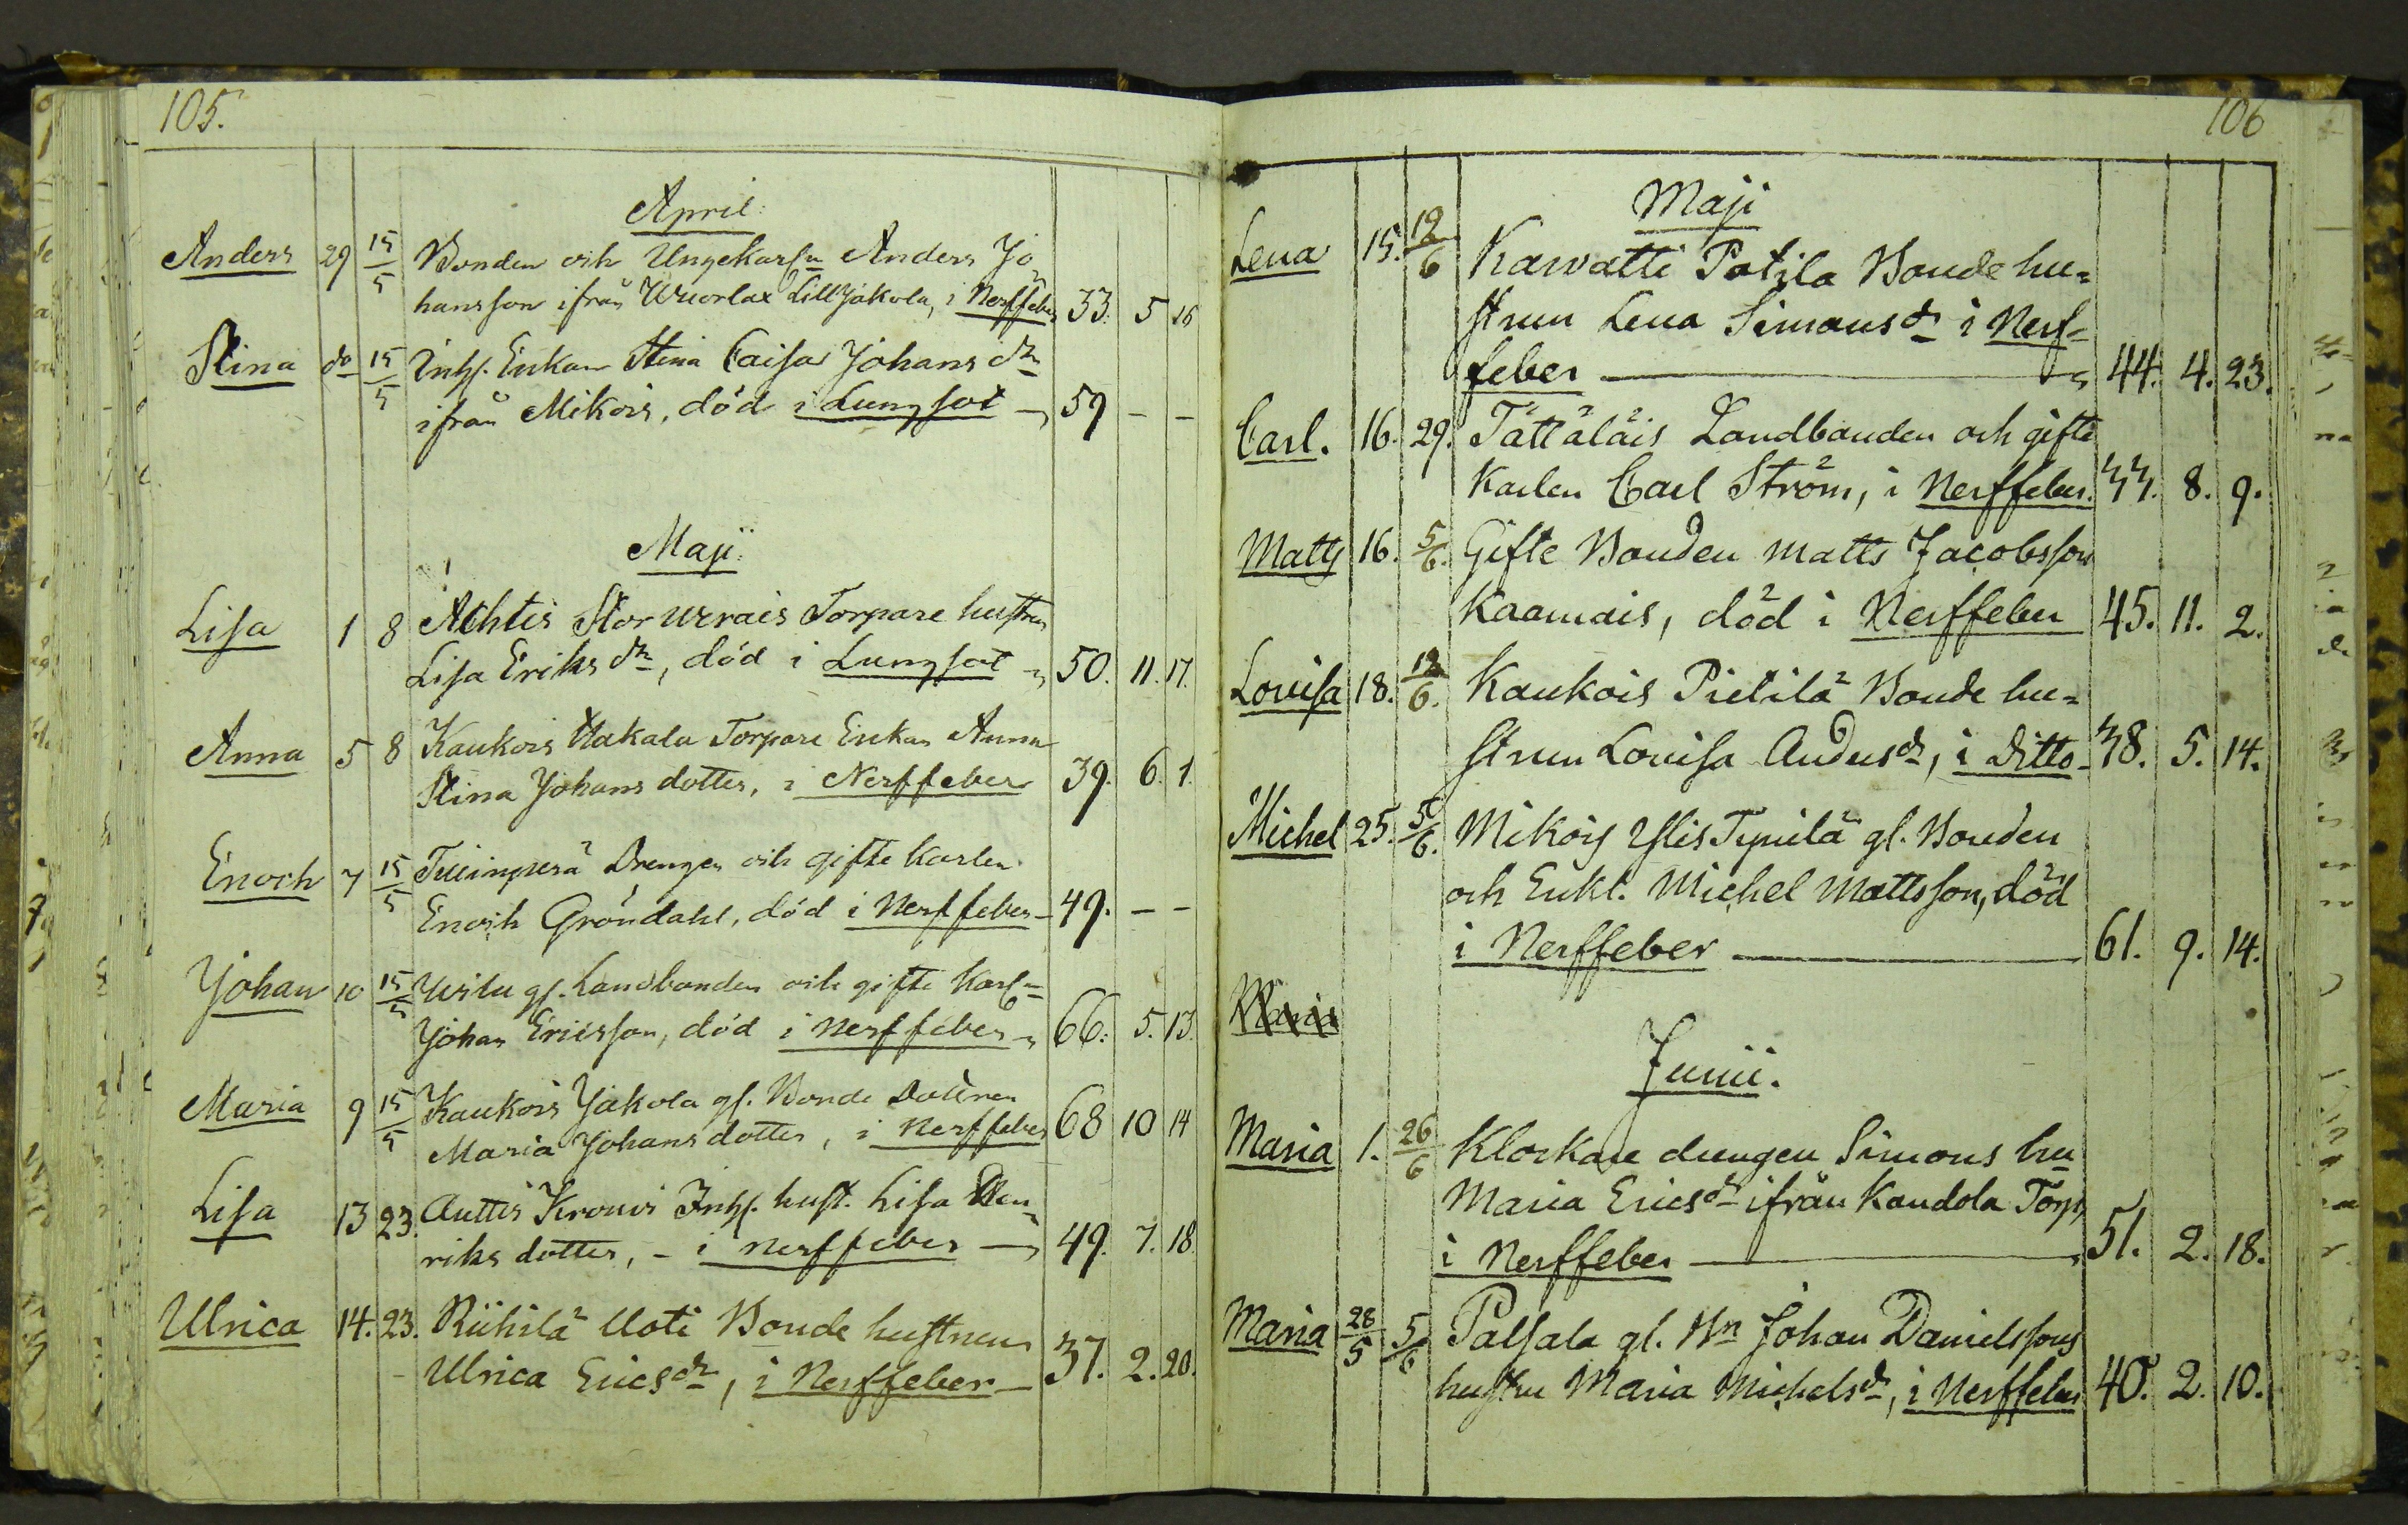 105.
April
Anders 29 15/5 Bonden och Ungekarln Anders Jo
hansson ifrån Wuorlax Lill Jakola, i Nerffeber 33. 5 16
Stina do 15/5 Inhs. Enkan Stina Caisa Johans dr
ifrån Mikois, död i Lungsot 59 - -
Maji
Lisa 1 8 Achtis Stor Urais Torpare hustru
Lisa Eriks dr, död i Lungsot 50. 11. 17.
Anna 5 8 Kaukois Hakala Torpare Enkan Anna
Stina Johans dotter, i Nerffeber 39. 6. 1.
Enoch 7 15/5 Drengen och gifte Karlen
Enoch Gröndahl, död i Nerffeber 49. - -
Johan 10 15/5 gl. Landbonden och gifte Karln
Johan Ericsson, död i Nerffeber 66. 5. 13.
Maria 9 15/5 Kaukois Jakola gl. Bonde Dottren
Maria Johans dotter, i Nerffeber 68 10 14
Lisa 13 23. Anttis Krouvi Inhs. hust. Lisa Hen
riks dotter, - i Nerffeber 49. 7. 18.
Ulrica 14. 23. Riihilä Uoti Bonde hustrun
Ulrica Ericsdr, i Nerffeber 37. 2. 20.
106
Maji
Lena 15. 12/6 Karvatti Potila Bonde hu=
strun Lena Simonsdr i Nerf=
feber 44. 4. 23.
Carl. 16. 29. Tättäläis Landbonden och gifte
Karlen Carl Ström, i Nerffeber. 44. 8. 9.
Matts 16. 5/6. Gifte Bonden Matts Jacobsson
Kaamais, död i Nerffeber 45. 11. 2.
Lovisa 18. 12/6. Kaukois Pietilä Bonde hu=
strun Lovisa Andersdr, i Ditto 38. 5. 14.
Michel 25. 5/6. Mikois Ylis gl. Bonden
och Enkl. Michel Mattsson, död
i Nerffeber 61. 9. 14.
Maria
Junii.
Maria 1. 26/6 Klockare drengen Simons hu
Maria Ericsdr ifrån Kandola Torp,
i Nerffeber 51. 2. 18.
Maria 28/5 5/6 Palsala gl. Bn Johan Danielssons
hustru Maria Michelsdr, i Nerffeber 40. 2. 10.